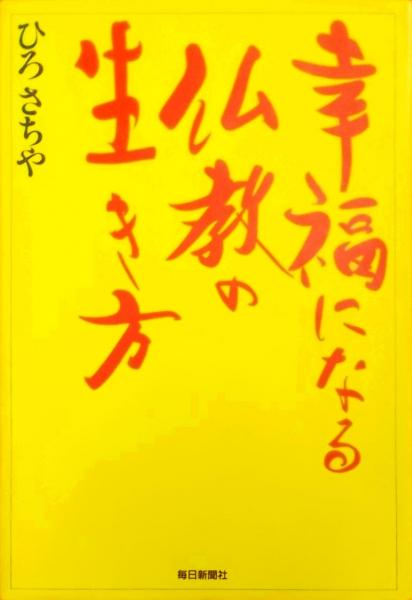 幸福になる
仏教の
生き方
ひろ さちや
毎日新聞社